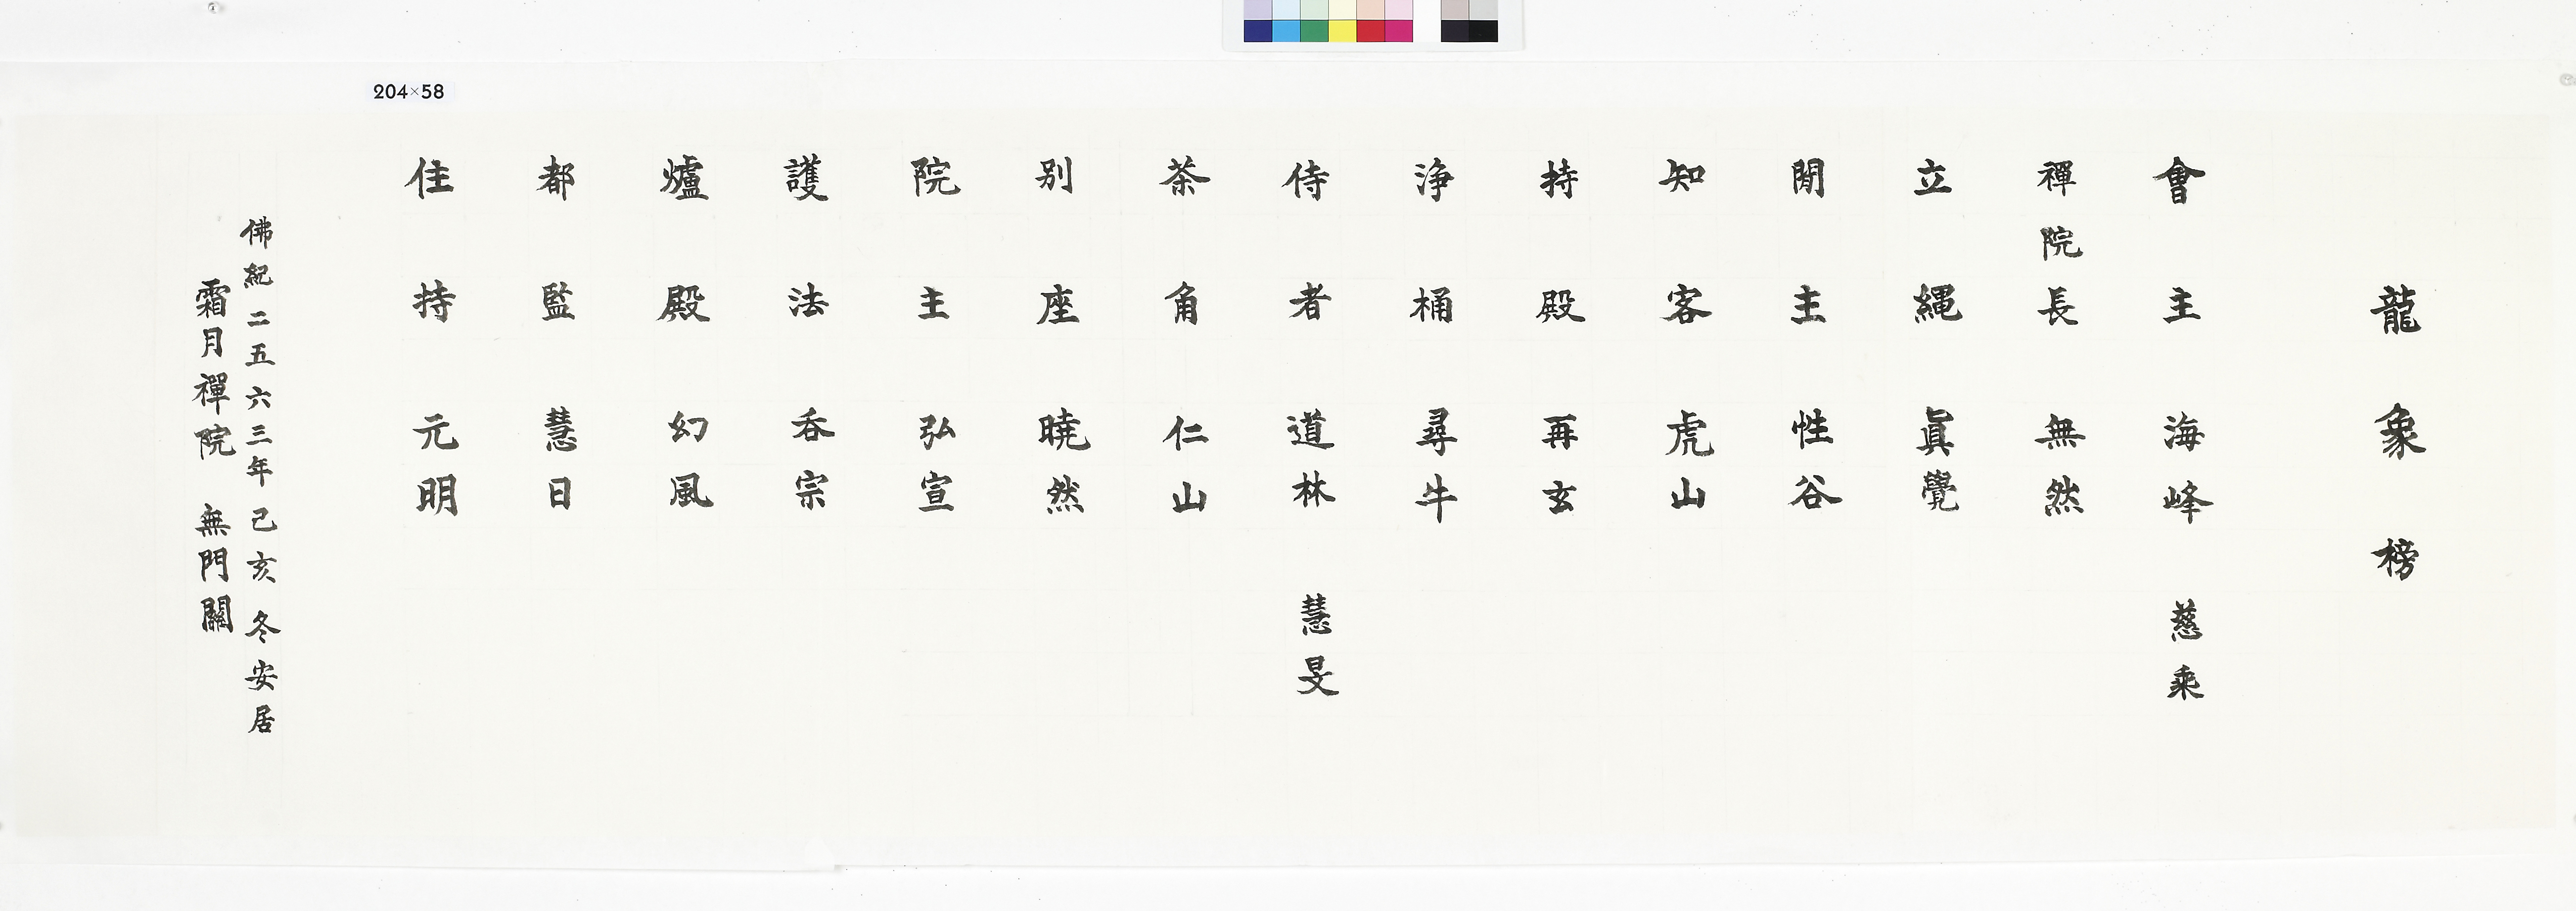 龍象榜
會主 海峰 慈乘
禪院長 無然
立繩 眞覺
閒主 性谷
知客 虎山
持殿 再玄
淨桶 尋牛
侍者 道林 慧旻
茶角 仁山
別座 曉然
院主 弘宣
護法 呑宗
爐殿 幻風
都監 慧日
住持 元明
佛紀二五六三年己亥冬安居
霜月禪院 無門關
204×58